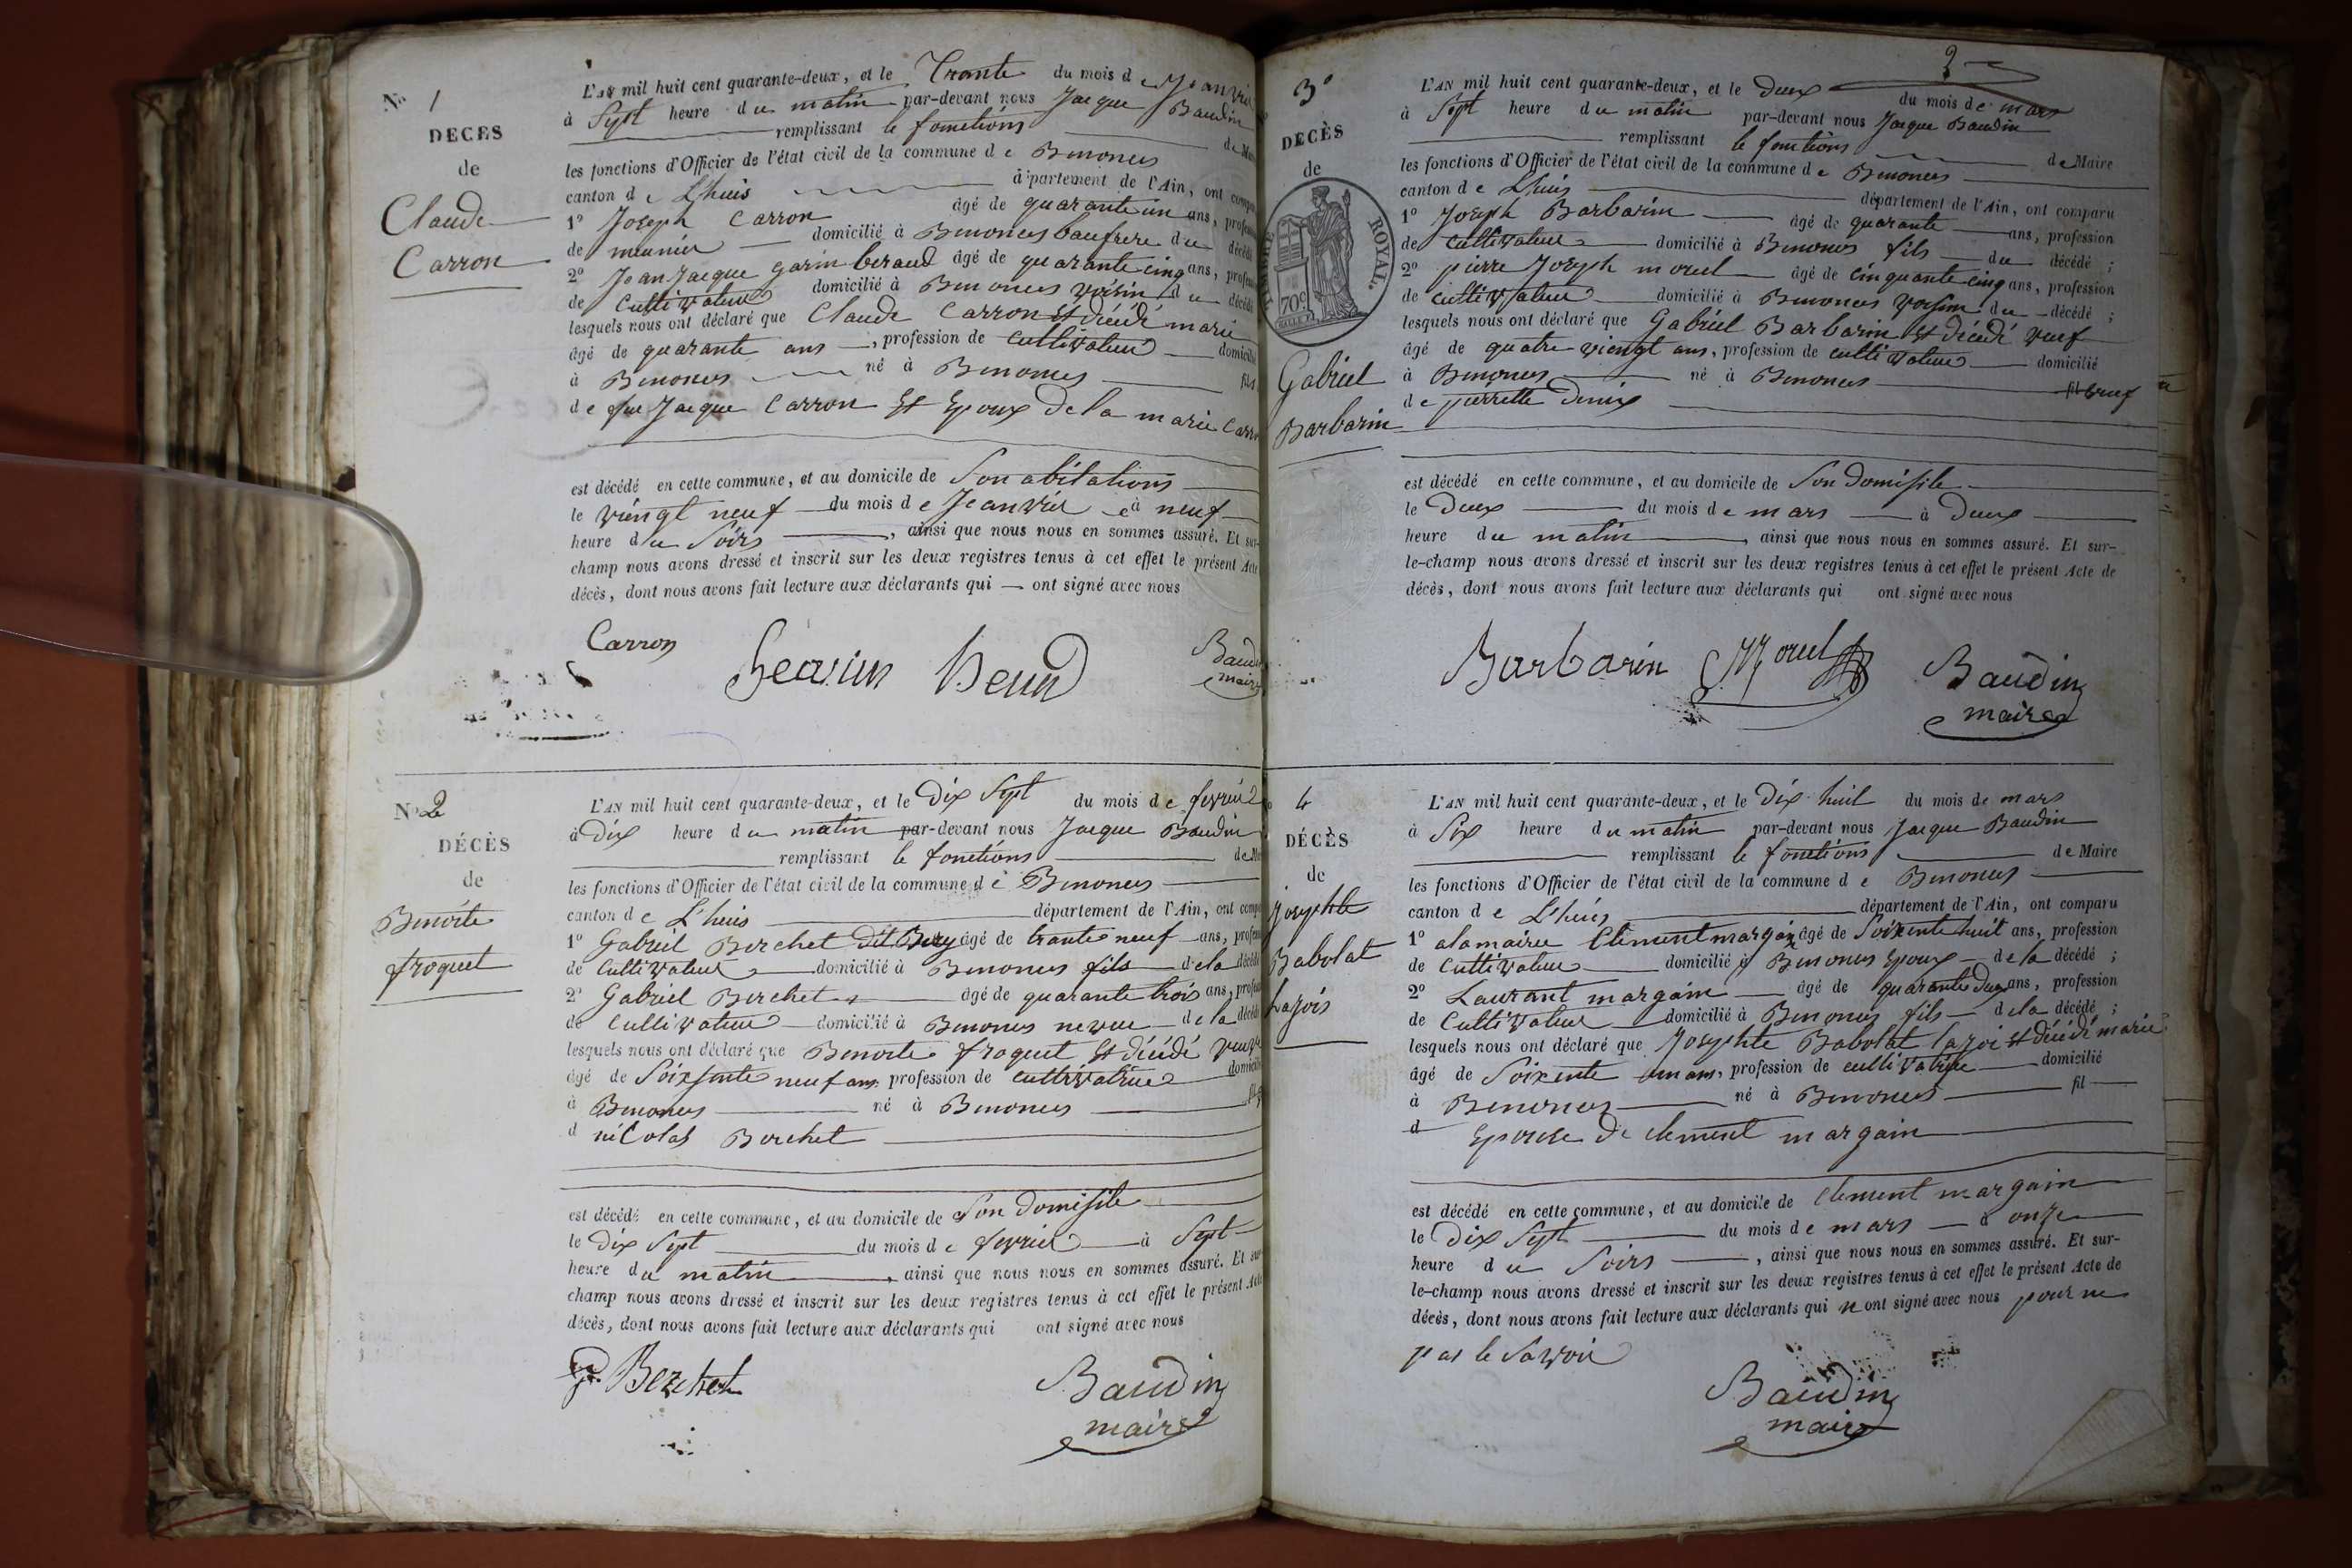 N° 1
DECES
de
Claude
Carron
L'AN mil huit cent quarante-deux, et le Trante du mois de Jeanvier
à Sept heure du matin par-devant nous Jacque Baudin
remplissant le fonctions de
les fonctions d'Officier de l'état civil de la commune de Benonces
canton de Lhuis département de l'Ain, ont
1° Joseph Carron âgé de quarante un ans,
de meunier domicilié à Benonces baufrere du
2° Jean Jacque garin beraud âgé de quarante cinq ans,
de Cultivateur domicilié à Benonces voisin du
lesquels nous ont déclaré que Claude Carron Est décédé marié
âgé de quarante ans, profession de Cultivateur
à Benonces né à Benonces fils
de feu Jacque Carron Et Epoux de la marie Carron
est décédé en cette commune, et au domicile de Son abitations
le viengt neuf du mois de Jeanvier à neuf
heure du Soirs, ainsi que nous nous en sommes assuré. Et sur-
champ nous avons dressé et inscrit sur les deux registres tenus à cet effet le présent Acte
décès, dont nous avons fait lecture aux déclarants qui ont signé avec nous
Carron Baudin
maire
N° 2
DÉCÈS
de
Benoite
froquet
L'AN mil huit cent quarante-deux, et le Dix Sept du mois de fevrier
à Dix heure du matin par-devant nous Jacque Baudin
remplissant le fonctions de
les fonctions d'Officier de l'état civil de la commune de Benonces
canton de L'huis département de l'Ain, ont
1° Gabriel Berchet Dit Bezy âgé de trante neuf ans,
de Cultivateur domicilié à Benonces fils de la
2° Gabriel Berchet âgé de quarante trois ans,
de Cultivateur domicilié à Benonces nevue de la
lesquels nous ont déclaré que Benoite froquet Est décédé veuve
âgé de Soixsente neuf ans, profession de cultivatrice
à Benonces né à Benonces
d nicolas Berchet
est décédé en cette commune, et au domicile de Son Domisile
le Dix Sept du mois de fevrier à Sept
heure du matin, ainsi que nous nous en sommes assuré. Et sur
champ nous avons dressé et inscrit sur les deux registres tenus à cet effet le présent Acte
décès, dont nous avons fait lecture aux déclarants qui ont signé avec nous
Berchet Baudin
maire
3°
DÉCÈS
de
TIMBRE ROYAL.
70c
Gabriel
Barbarin
L'AN mil huit cent quarante-deux, et le Deux du mois de mars
à Sept heure du matin par-devant nous Jacque Baudin
remplissant le fonctions de Maire
les fonctions d'Officier de l'état civil de la commune de Benonces
canton de Lhuis département de l'Ain, ont comparu
1° Joseph Barbarin âgé de quarante ans, profession
de Cultivateur domicilié à Benonces fils du décédé ;
2° pierre Joseph morel âgé de cinquante cinq ans, profession
de cultivateur domicilié à Benonces voisin du décédé ;
lesquels nous ont déclaré que Gabriel Barbarin Est décédé veuf
âgé de quatre viengt ans, profession de cultivateur domicilié
à Benonces né à Benonces fil veuf
de pierrette Denix
est décédé en cette commune, et au domicile de Son Domisile
le Deux du mois de mars à Deux
heure du matin, ainsi que nous nous en sommes assuré. Et sur-
le-champ nous avons dressé et inscrit sur les deux registres tenus à cet effet le présent Acte de
décès, dont nous avons fait lecture aux déclarants qui ont signé avec nous
Barbarin Morel Baudin
maire
4
DÉCÈS
de
Josephte
Babolat
Lazois
L'AN mil huit cent quarante-deux, et le Dix huit du mois de mars
à Six heure du matin par-devant nous Jacque Baudin
remplissant le fonctions de Maire
les fonctions d'Officier de l'état civil de la commune de Benonces
canton de L'huis département de l'Ain, ont comparu
1° alamairie Clement margain âgé de Soixente huit ans, profession
de Cultivateur domicilié à Benonces Epoux de la décédé ;
2° Laurant margain âgé de quarante Deux ans, profession
de Cultivateur domicilié à Benonces fils de la décédé ;
lesquels nous ont déclaré que Josephte Babolat lazoi Est décédé marié
âgé de Soixente ans, profession de cultivatrice domicilié
à Benonces né à Benonces fil
d Epouse de Clement margain
est décédé en cette commune, et au domicile de Clement margain
le Dix Sept du mois de mars à onze
heure du Soirs, ainsi que nous nous en sommes assuré. Et sur-
le-champ nous avons dressé et inscrit sur les deux registres tenus à cet effet le présent Acte de
décès, dont nous avons fait lecture aux déclarants qui n ont signé avec nous pour ne
pas le Savoir
Baudin
maire